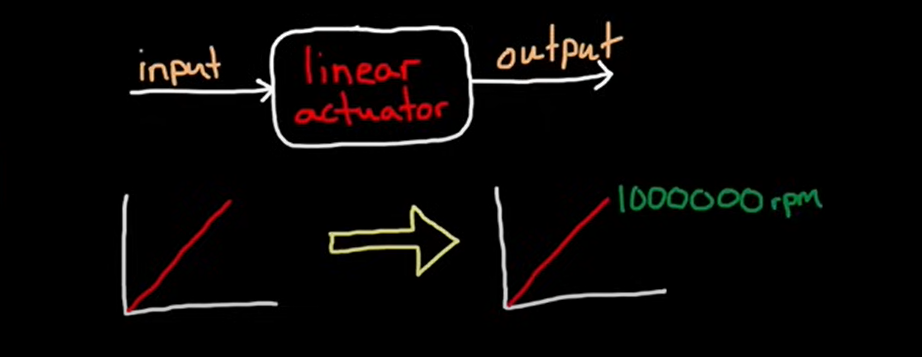 input
linear
actuator
output
1000000 rpm